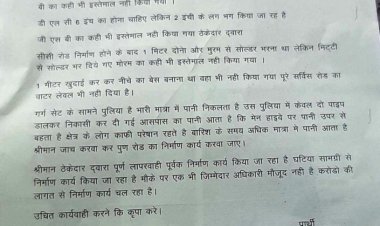 बी का कही भी इस्तेमाल नही किया गया ।
डी एल सी 6 इंच का होना चाहिए लेकिन 2 इंची के लग भग किया जा रह है
जी एस बी का कही भी इस्तेमाल नही किया गया ठेकेदार द्वारा
सीसी रोड निर्माण होने के बाद 1 मिटर दोनो और मुरम से सोल्डर भरना था लेकिन मिट्टी
से सोल्डर भर दिये गए मोरम का कही भी इस्तेमाल नही किया गया ।
1 मीटर खुदाई कर कर नीचे का बेस बनाना था वहा भी नही किया गया पूरे सर्विस रोड का
वाटर लेवल भी नही दिया है।
गर्ग सेट के सामने पुलिया है भारी मात्रा में पानी निकलता है उस पुलिया में केवल दो पाइप
डालकर निकासी कर दी गई आसपास का पानी आता है कि मेन हाइवे पर पानी उपर से
बहता है क्षेत्र के लोग काफी परेषान रहते है बारिश के समय अधिक मात्रा मे पानी आता है
श्रीमान जाच करवा कर पुण रोड का निर्माण कार्य करवा जाए।
श्रीमान ठेकदार द्वारा पूर्ण लापरवाही पूर्वक निर्माण कार्य किया जा रहा है घटिया सामग्री से
निर्माण कार्य किया जा रहा है मौके पर एक भी जिम्मेदार अधिकारी मौजूद नही है करोडो की
लागत से निर्माण कार्य चल रहा है।
उचित कार्यवाही करने कि कृपा करे।
प्रार्थी